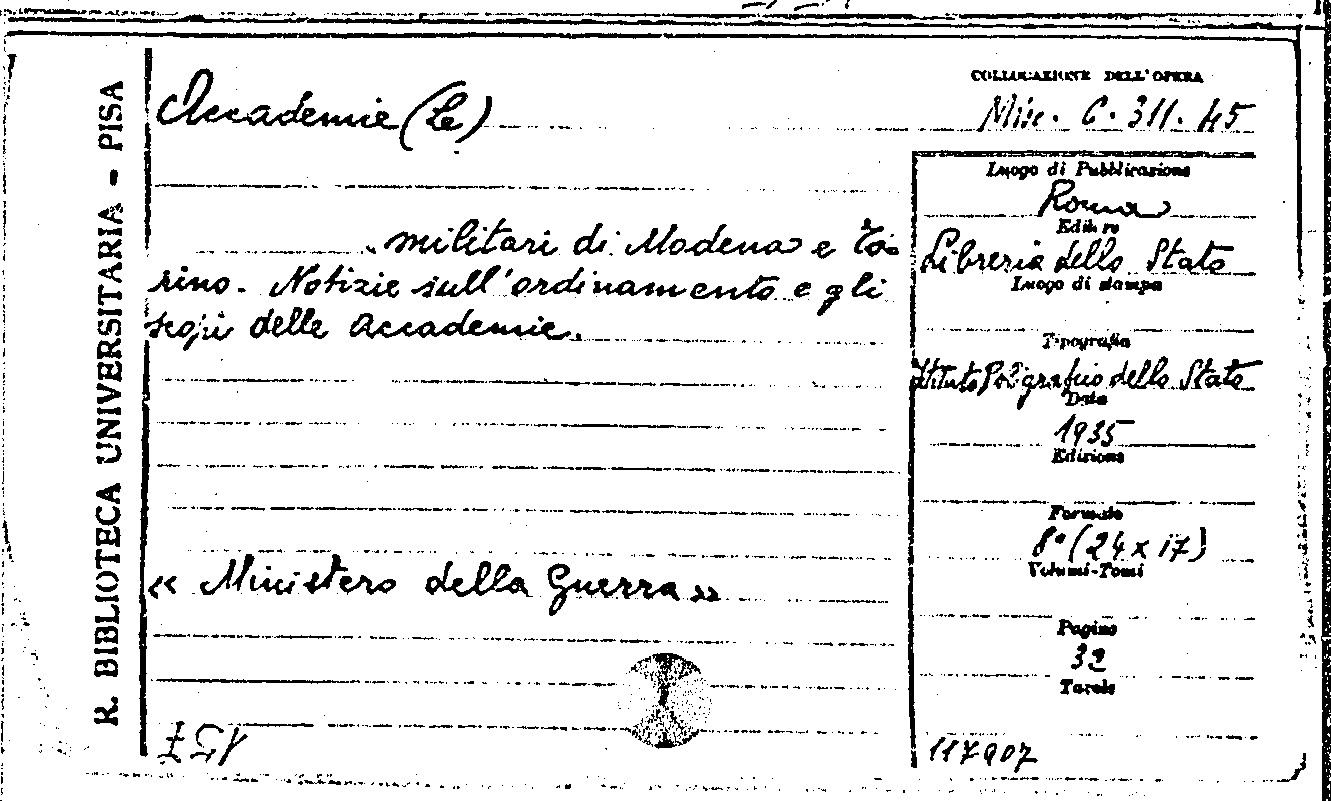 R. BIBLIOTECA UNIVERSITARIA - PISA
Accademie (Le)
militari di Modena e To-
rino. Notizie sull'ordinamento e gli
scopi delle Accademie.
« Ministero della Guerra »
COLLOCAZIONE DELL'OPERA
Misc. C. 311. 45
Luogo di Pubblicazione
Roma
Editore
Libreria dello Stato
Luogo di stampa
Tipografia
Istituto Poligrafico dello Stato
Data
1935
Edizione
Formato
8° (24 x 17)
Volumi-Tomi
Pagine
32
Tavole
117907